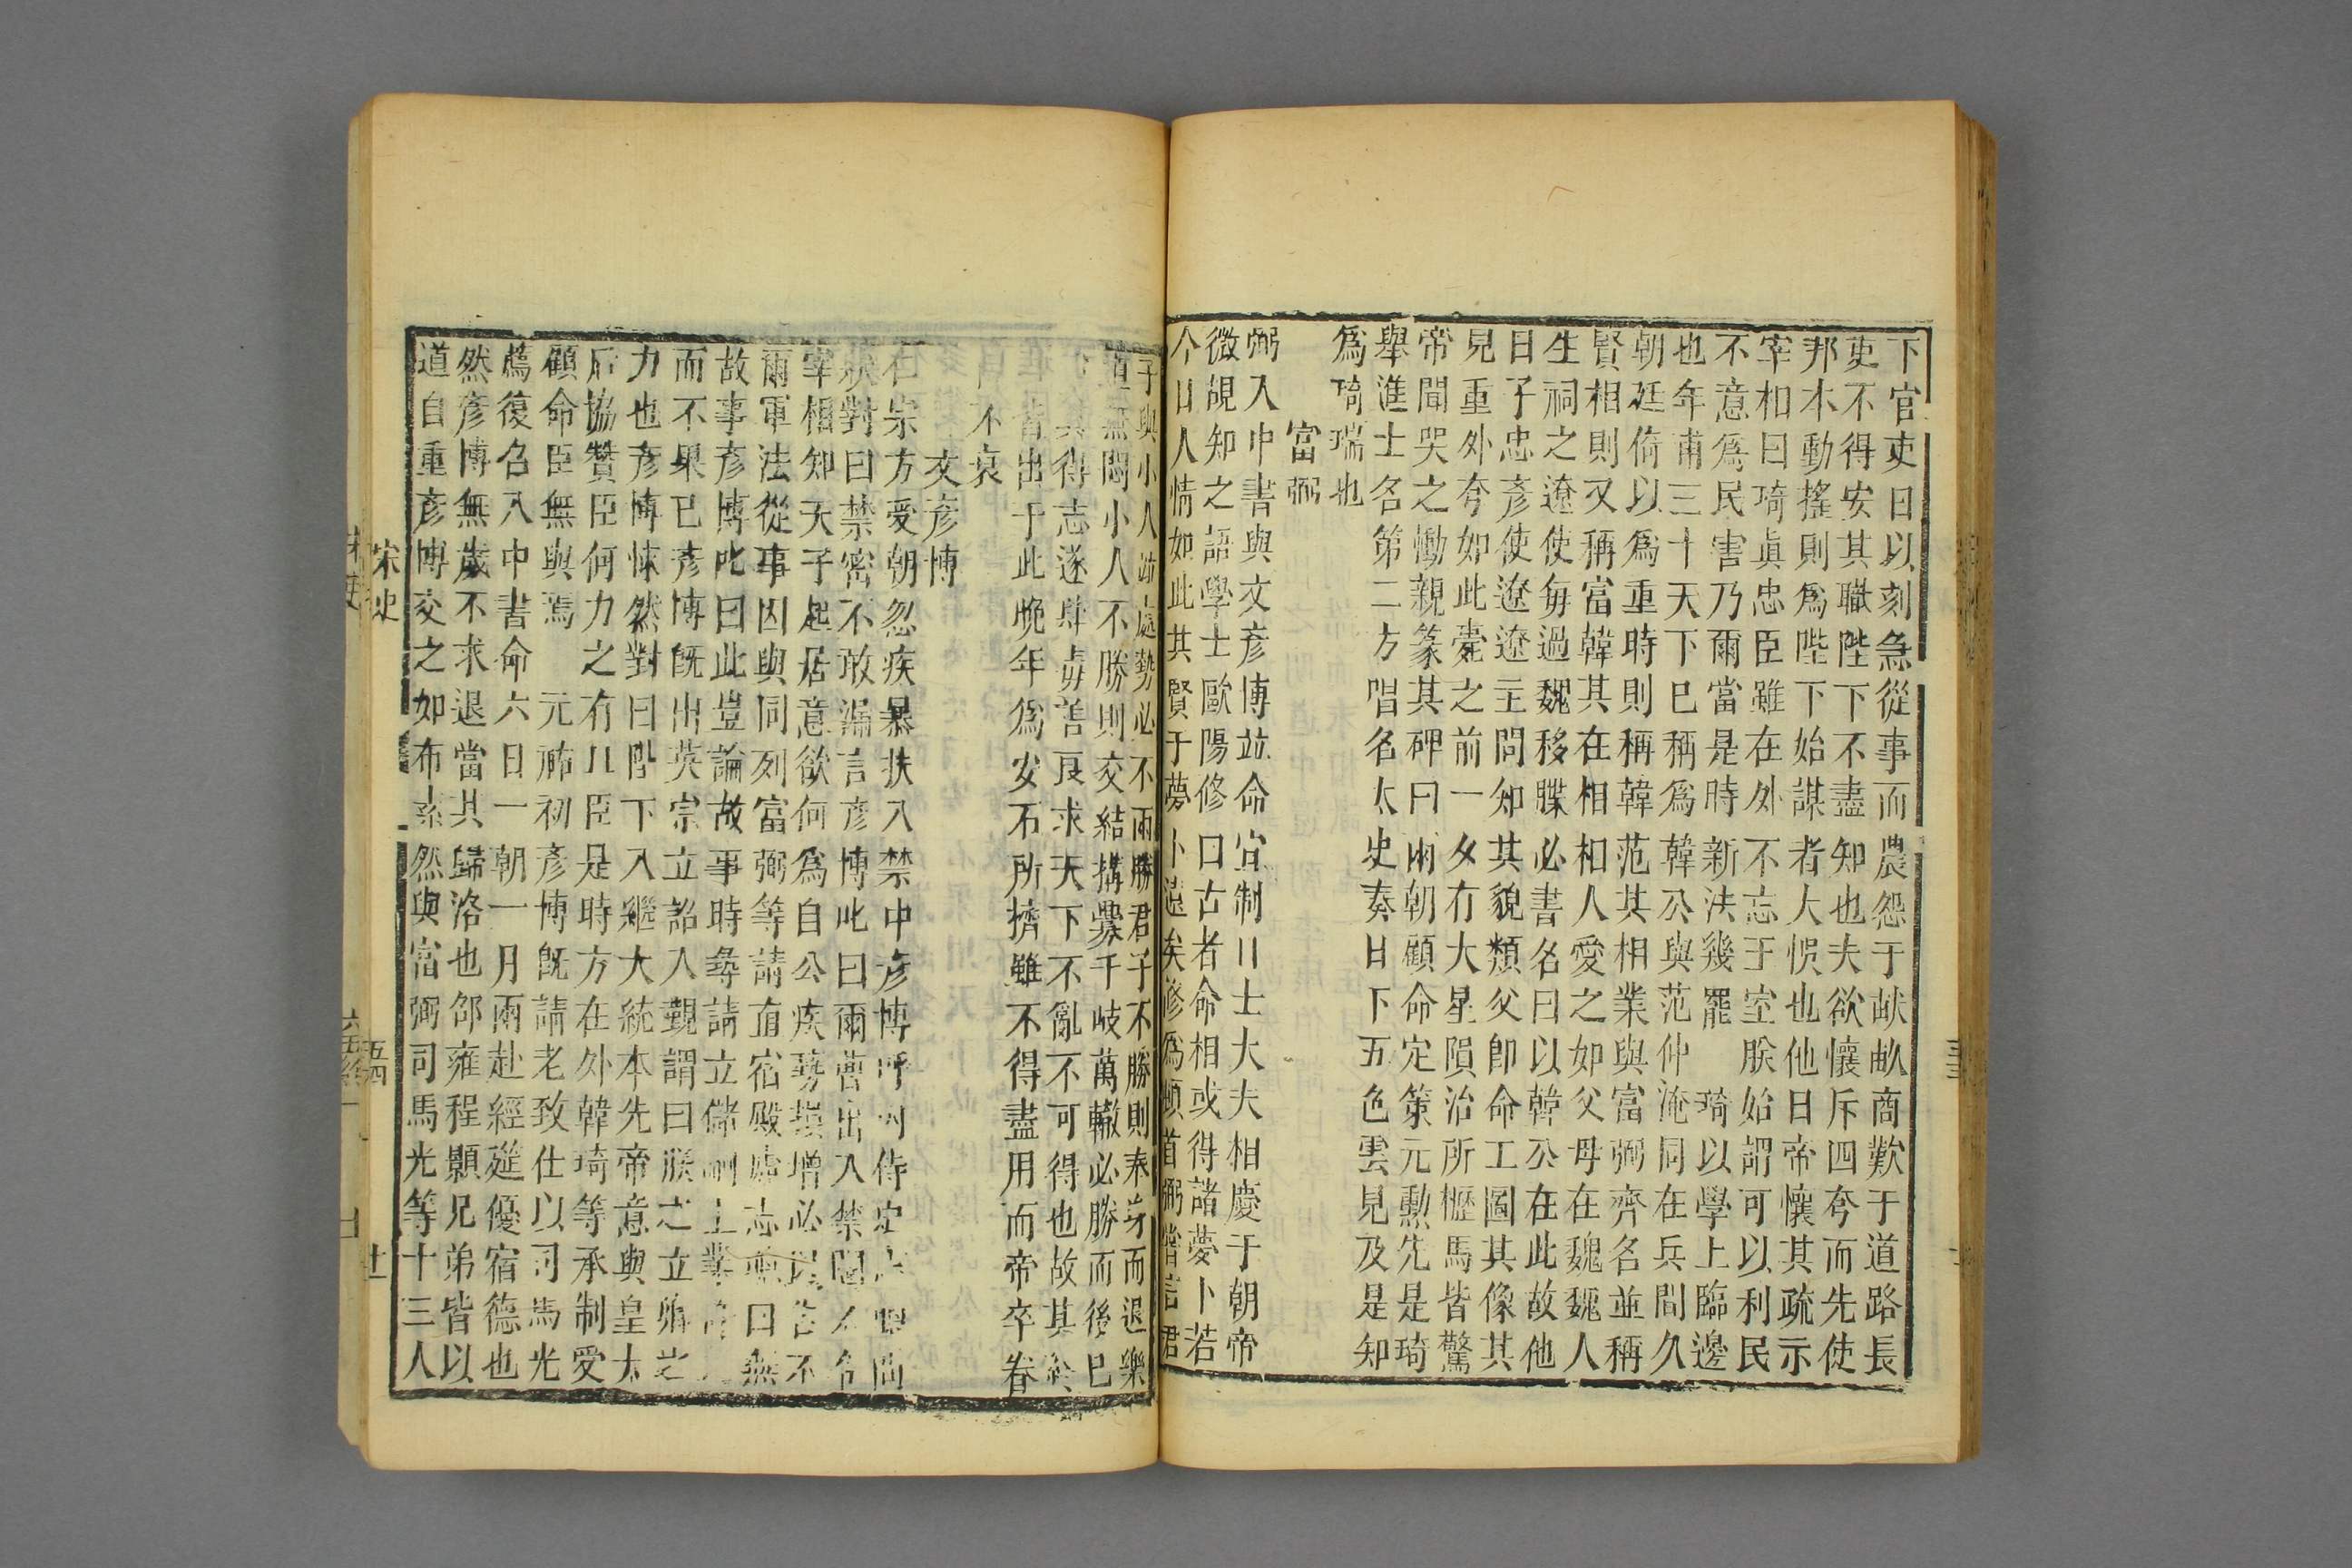 下官吏日以刻急從事而農怨于畎畝商歎于道路長
吏不得安其職陛下不盡知也夫欲懷斥四夸而先使
邦木動搖則為陛下始謀者大悞也他日帝懷其疏示
宰相曰琦真忠臣雖在外不忘于室朕始謂可以利民
不意為民害乃爾當是時新法幾罷 琦以學上臨邊
也年甫三十天下已稱為韓公與范仲淹同在兵間久
朝廷倚以為重時則稱韓范其相業與富弼齊名並稱
賢相則又稱富韓其在相相人愛之如父母在魏魏人
生祠之遼使每過魏移牒必書名曰以韓公在此故他
日子忠彥使遼遼主問知其貌類父即命工圖其像其
見重外夸如此薨之前一夕有大星隕治所櫪馬皆驚
帝聞哭之慟親篆其碑曰兩朝顧命定策元勳先是琦
舉進士名第二方唱名太史奏日下五色雲見及是知
為琦瑞也
富弼
弼入中書與文彥博竝命宣制日士大夫相慶于朝帝
微覘知之語學士歐陽修 曰古者命相或得諸夢卜若
今日人情如此其賢于夢卜遠矣修為頓首弼嘗言君
子與小人並處勢必不兩勝君子不勝則奉身而退樂
道無悶小人不勝則交結搆釁千岐萬轍必勝而後已
其得志遂肆毒善良求天下不亂不可得也故其
皆出于此晚年為安石所擠雖不得盡用而帝卒眷
不衰
文彥博
仁宗方受朝忽疾暴扶入禁中彥博呼內侍史
狀對曰禁密不敢漏言彥博叱曰爾曹出入禁闥不令
宰相知天子起居意欲何為自公疾勢損增必以告不
爾軍法從事因與同列富弼等請宿殿廬志聰曰無
故事彥博叱曰此豈論故事時尋請立儲嗣上
而不果已彥博既出英宗立詔入覲謂曰朕之立
力也彥博悚然對曰陛下入繼大統本先帝意與皇太
后協贊臣何力之有且臣是時方在外韓琦等承制受
顧命臣無與焉 元祐初彥博既請老致仕以司馬光
薦復召入中書命六日一朝一月兩赴經筵優宿德也
然彥博無歲不求退當其歸洛也邵雍程顥兄弟皆以
道自重彥博交之如布素然與富弼司馬光等十三人
宋史